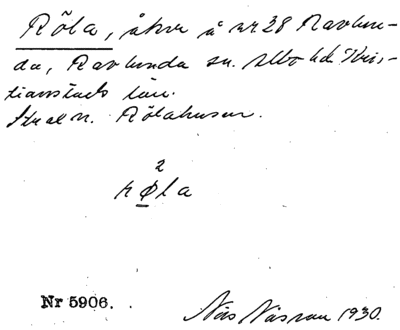 Röla, åker å nr 28 Ravlun-
da, Ravlunda sn. Albo hd. Kris-
tianstads län.
Ström. Rölahusen.
2
røla
Nr 5906.
Nils Näsman 1930.